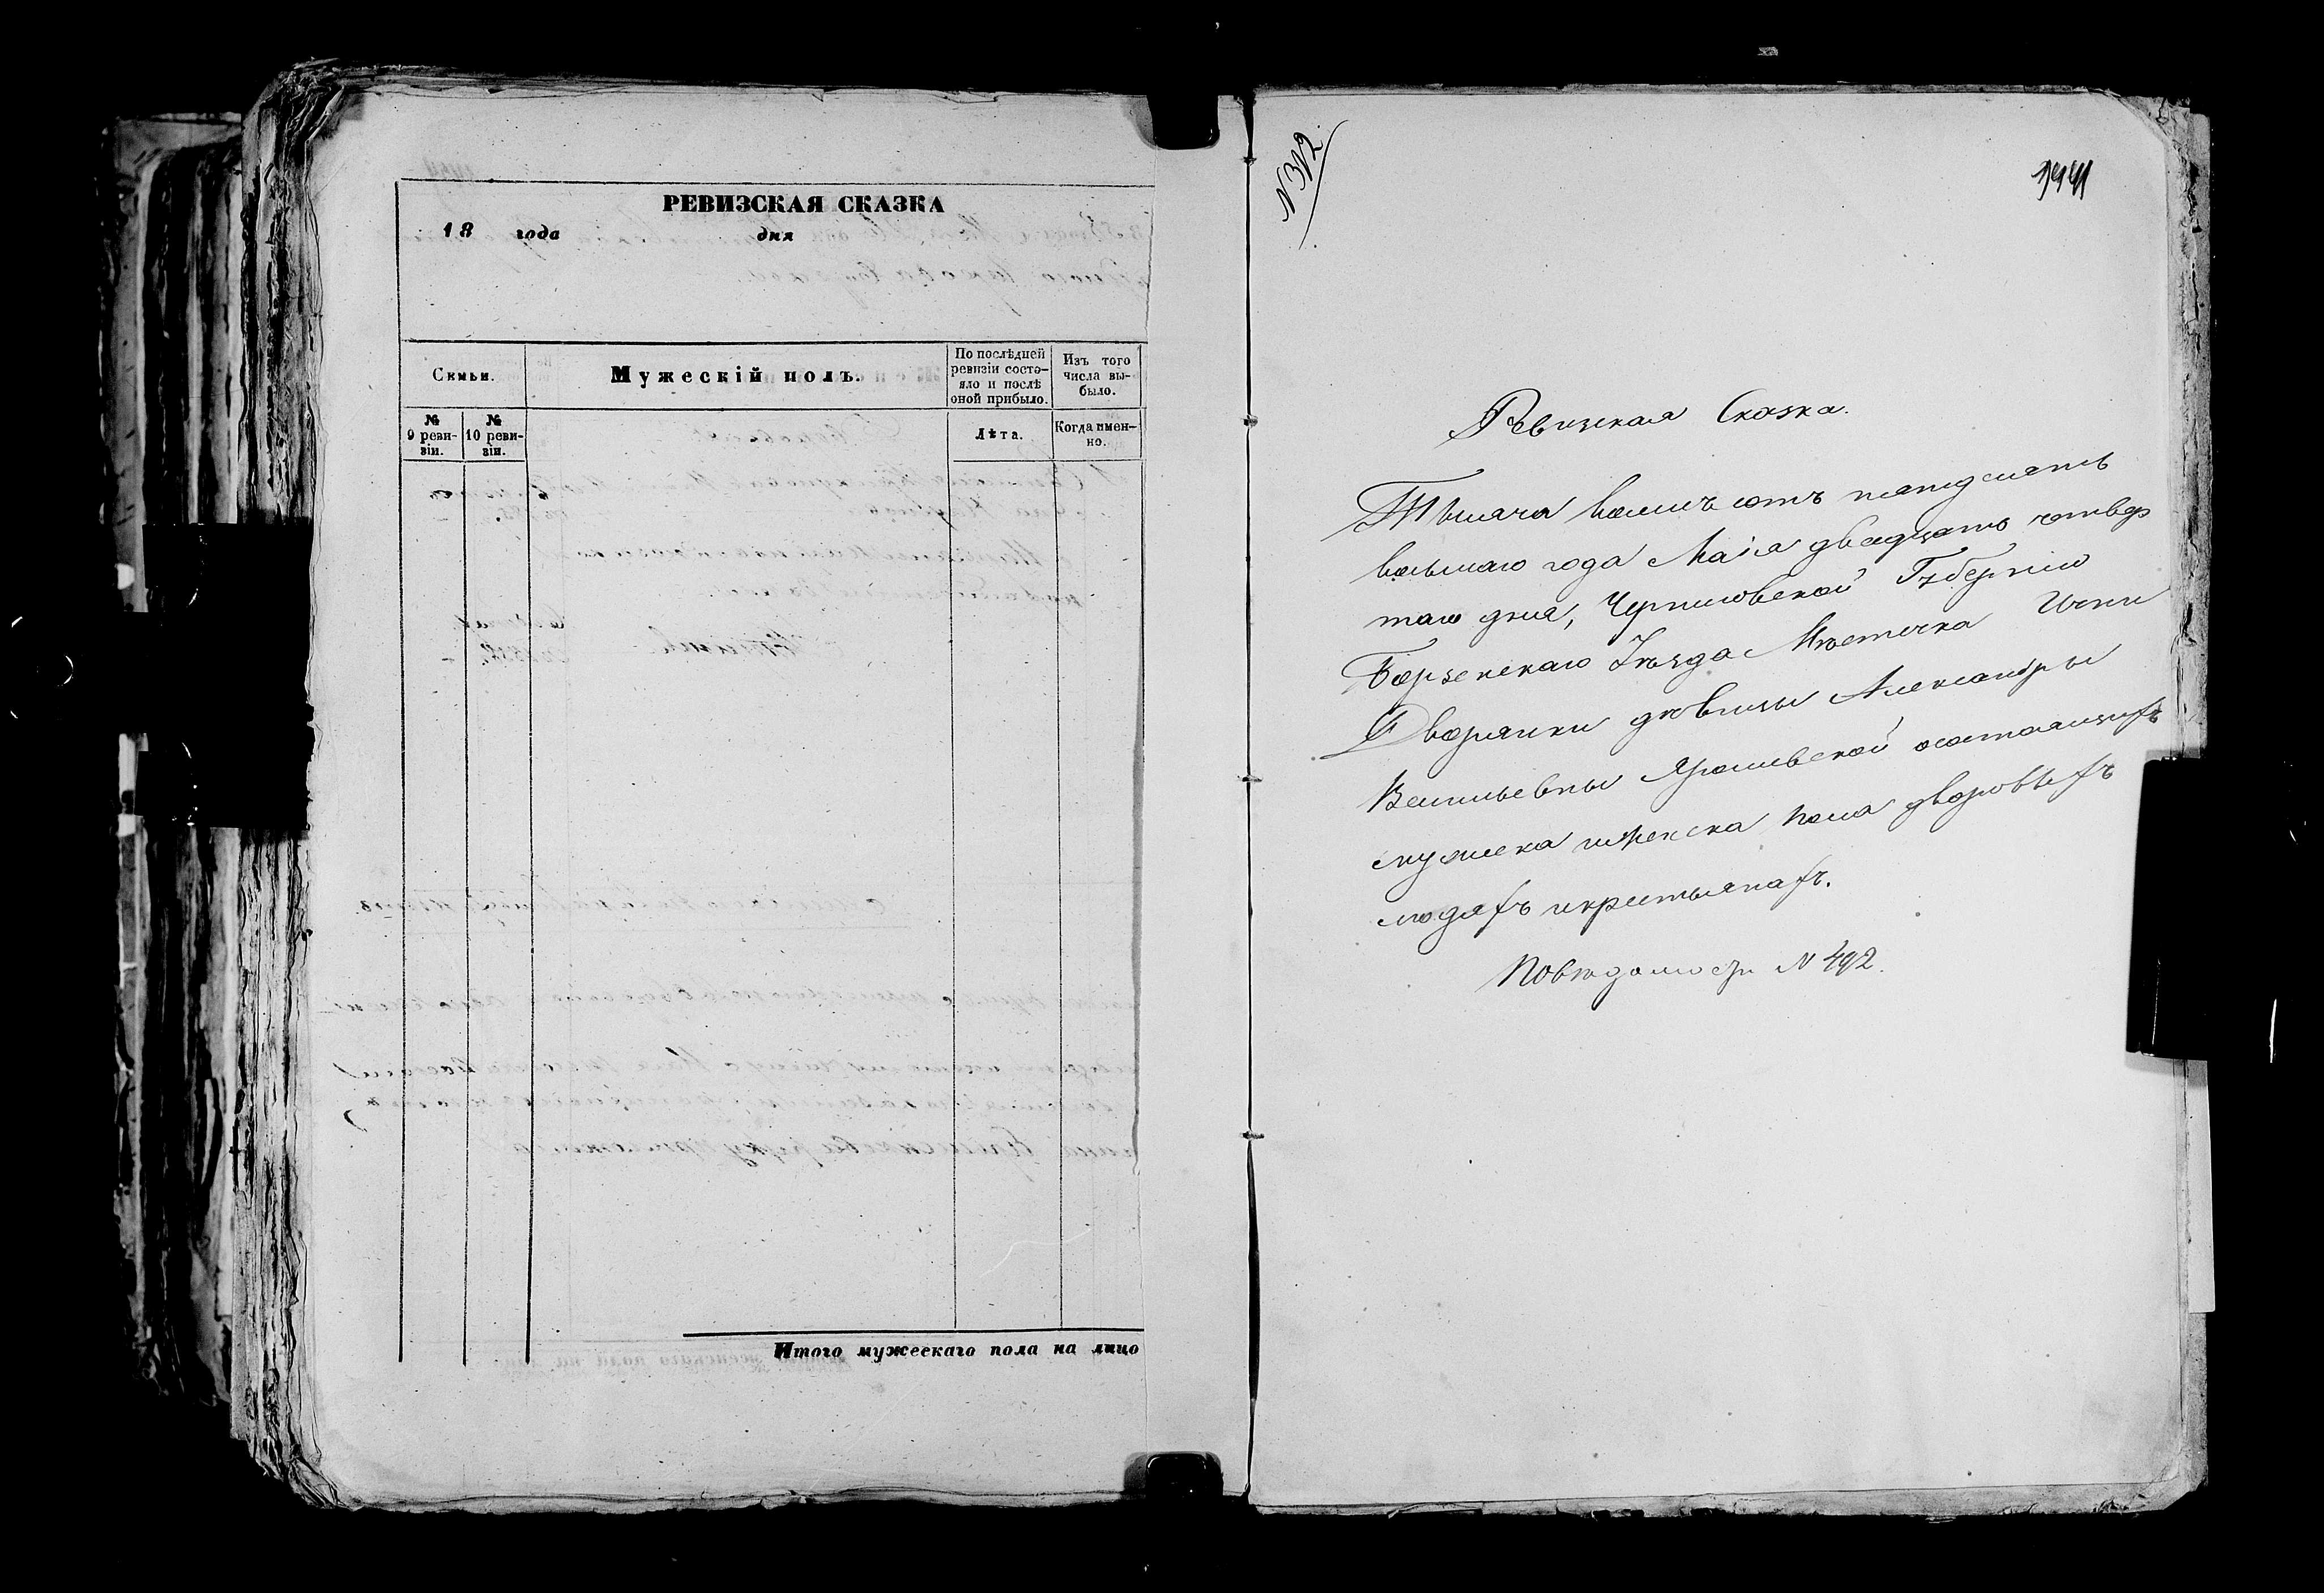 РЕВИЗСКАЯ СКАЗКА
18 года дня
Семьи.
Мужескій полъ.
По послѣдней ревизіи состояло и послѣ оной прибыло.
Изъ того числа выбыло.
№ 9 ревизіи.
№ 10 ревизіи.
Лѣта.
Когда именно.
Итого мужескаго пола на лицо
N 312
1441
Ревизская Сказка.
Тысяча восемъ сотъ пятдесятъ
восьмаго года Маія двадцать четвер
таго дня, Черниговской Губерніи
Борзенскаго Уѣзда Мѣстечка Ични
Дворянки дѣвицы Александры
Васильевны Ярошевской о состоящихъ
мужеска и женска пола дворовыхъ
людяхъ и крестьянахъ.
По вѣдомости N 492.